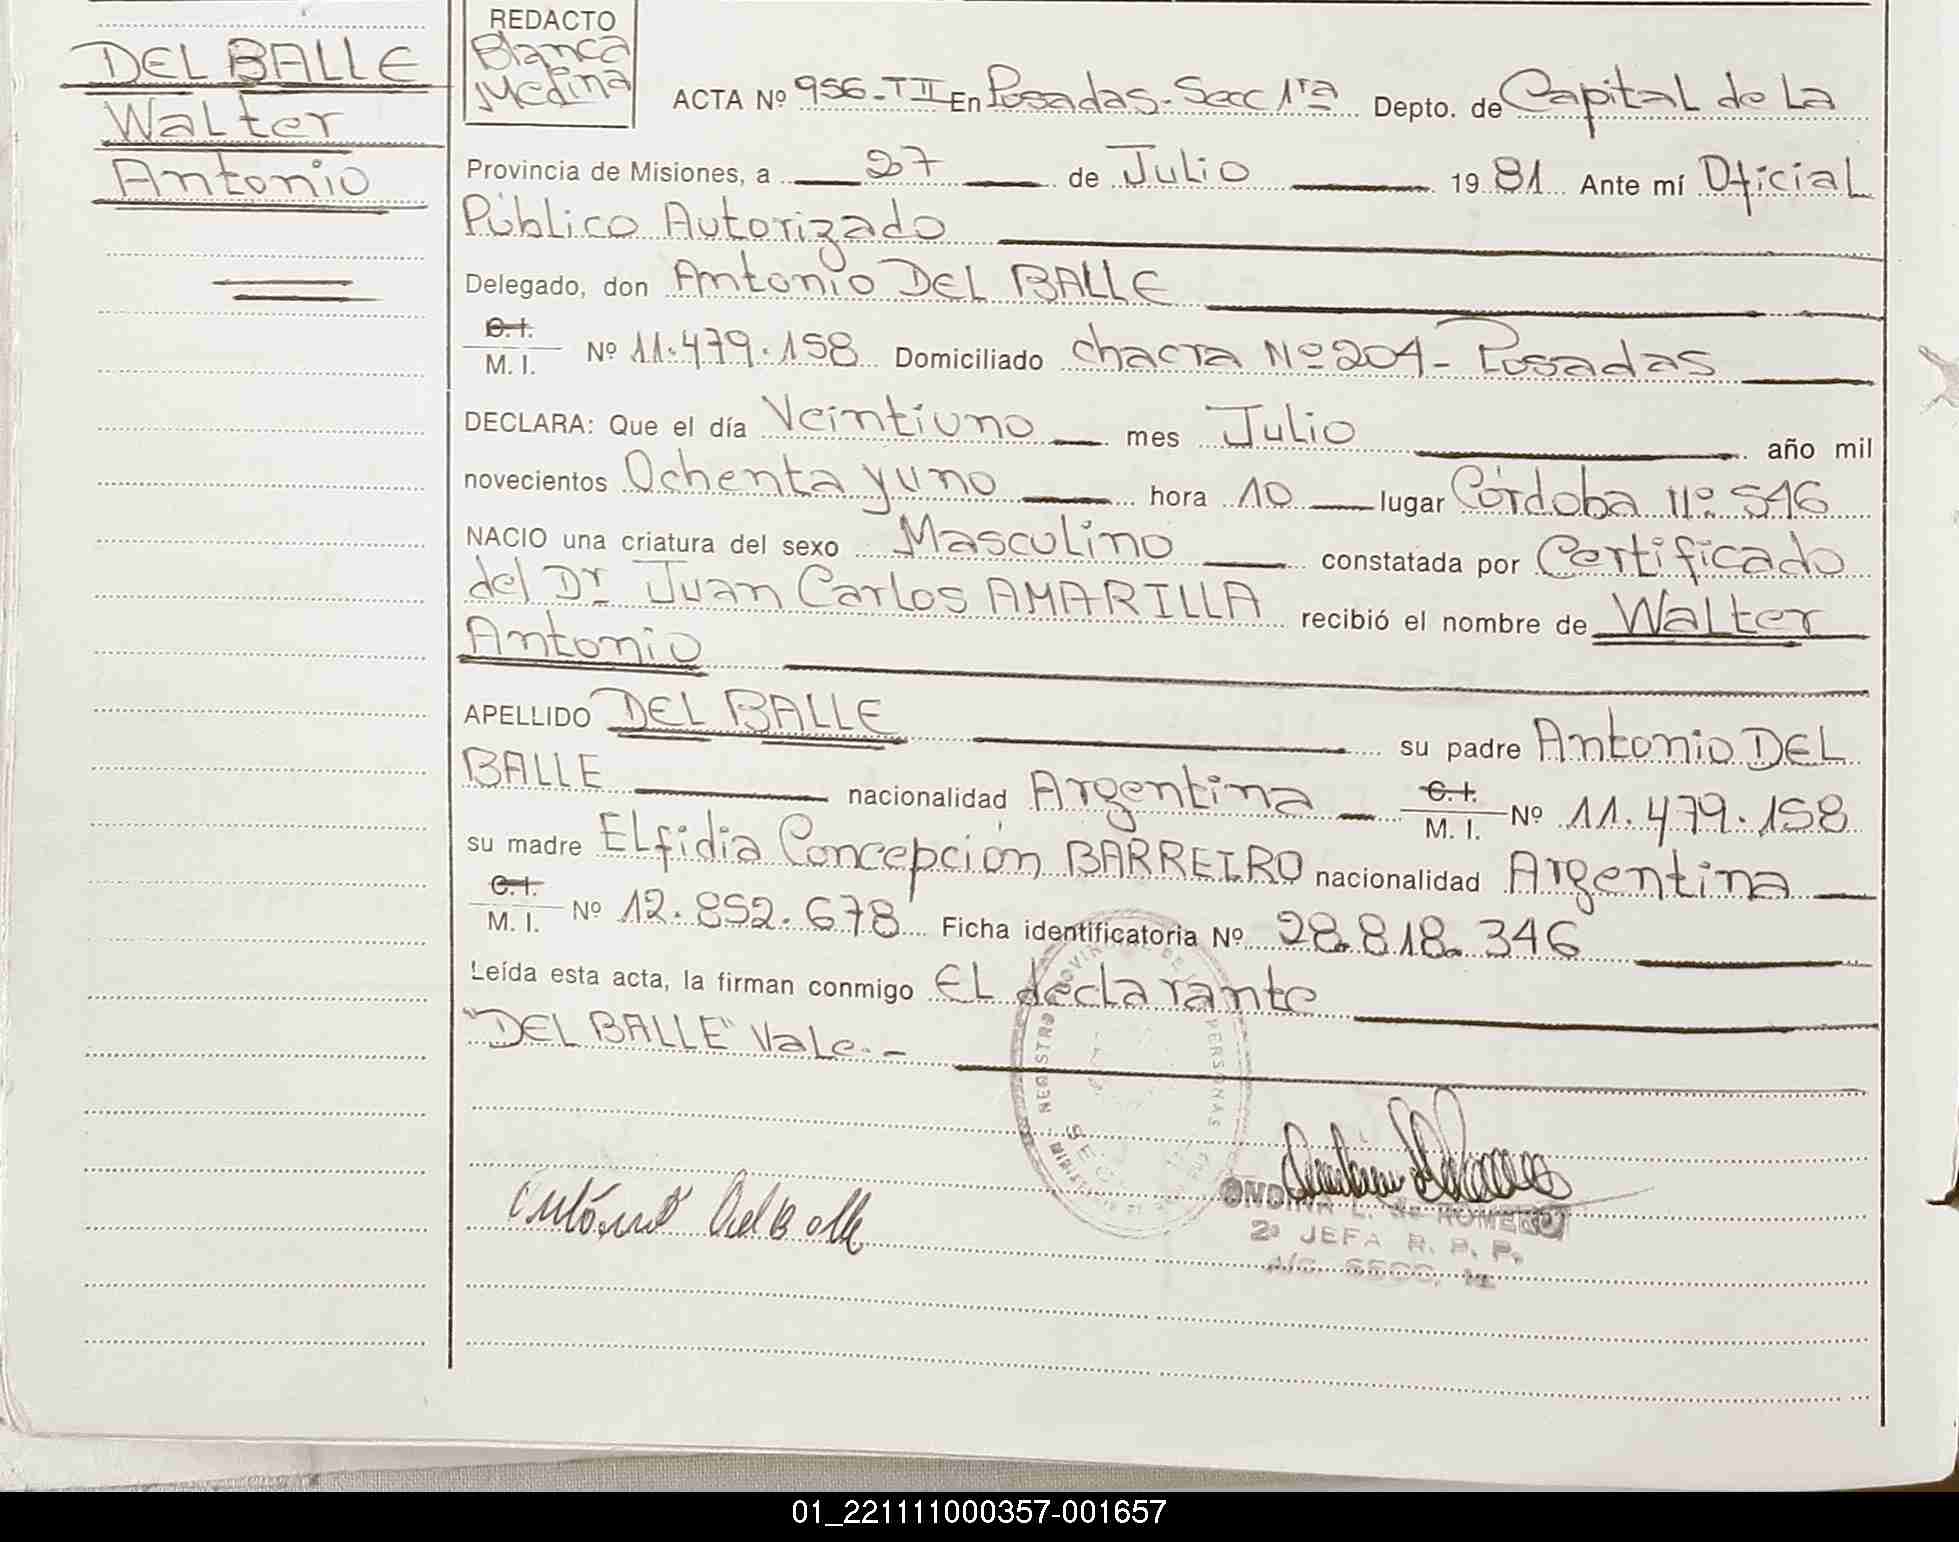 DEL BALLE
Walter
Antonio
REDACTO
Blanca
Medina
ACTA Nº 956-TII En Posadas-Secc 1ra Depto. de Capital de La
Provincia de Misiones, a 27 de Julio 19 81 Ante mí Oficial
Público Autorizado
Delegado, don Antonio DEL BALLE
C.I.
M. I. Nº 11.479.158 Domiciliado chacra Nº 204-Posadas
DECLARA: Que el día Veintiuno mes Julio año mil
novecientos Ochenta y uno hora 10 lugar Córdoba nº 546
NACIO una criatura del sexo Masculino constatada por Certificado
del Dr Juan Carlos AMARILLA recibió el nombre de Walter
Antonio
APELLIDO DEL BALLE su padre Antonio DEL
BALLE nacionalidad Argentina C.I. M. I. Nº 11.479.158
su madre ELfidia Concepción BARREIRO nacionalidad Argentina
C.I.
M. I. Nº 12.852.678 Ficha identificatoria Nº 28.818.346
Leída esta acta, la firman conmigo EL declarante
"DEL BALLE" Vale.-
Antonio Del Balle
ONDINA L. de ROMERO
2ª JEFA R. P. P.
A/C. SECC. 1ª
01_221111000357-001657